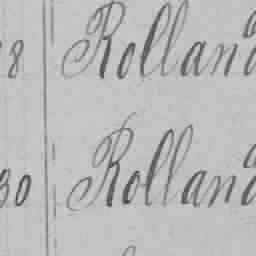 8 Rolland
30 Rolland